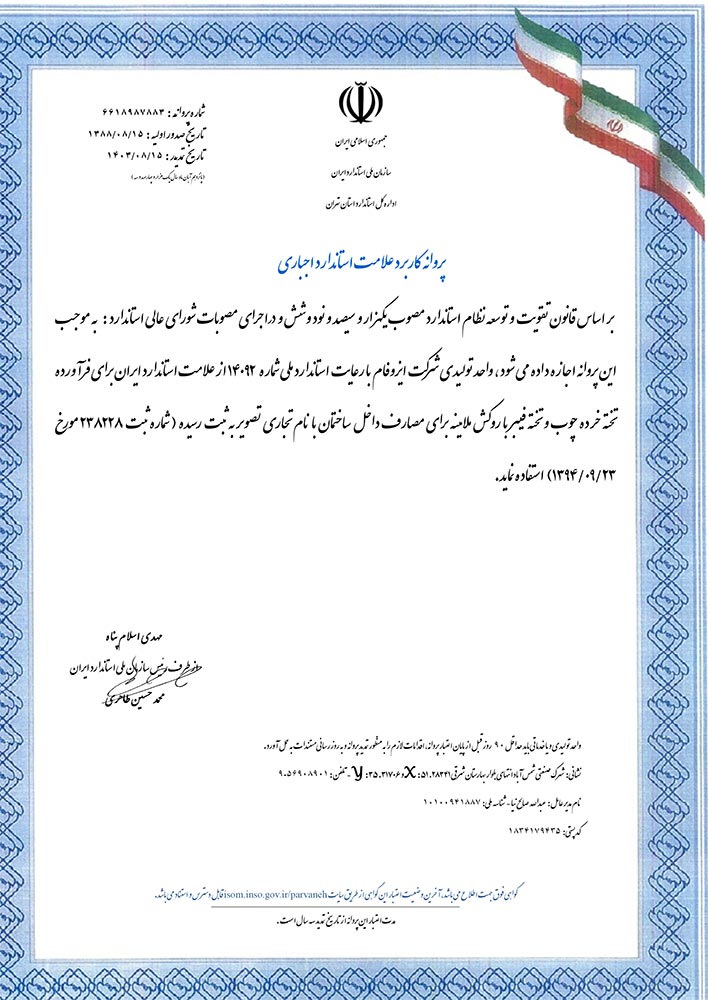 شماره پروانه: ۶۶۱۸۹۸۷۸۸۳
تاریخ صدور اولیه: ۱۳۸۸/۰۸/۱۵
تاریخ تمدید: ۱۴۰۳/۰۸/۱۵
(پانزدهم آبان ماه سال یک هزار و چهارصد و سه)
جمهوری اسلامی ایران
سازمان ملی استاندارد ایران
اداره کل استاندارد استان تهران
پروانه کاربرد علامت استاندارد اجباری
بر اساس قانون تقویت و توسعه نظام استاندارد مصوب یکهزار و سیصد و نود و شش و در اجرای مصوبات شورای عالی استاندارد: به موجب
این پروانه اجازه داده می شود، واحد تولیدی شرکت ایزوفام با رعایت استاندارد ملی شماره ۱۴۰۹۲ از علامت استاندارد ایران برای فرآورده
تخته خرده چوب و تخته فیبر با روکش ملامینه برای مصارف داخل ساختمان با نام تجاری تصویر به ثبت رسیده (شماره ثبت ۲۳۸۲۲۸ مورخ
۱۳۹۴/۰۹/۲۳) استفاده نماید.
مهدی اسلام پناه
از طرف رئیس سازمان ملی استاندارد ایران
محمد حسین طاهری
واحد تولیدی و یا خدماتی باید حداقل ۹۰ روز قبل از پایان اعتبار پروانه، اقدامات لازم را به منظور تمدید پروانه و به روز رسانی مستندات به عمل آورد.
نشانی: شهرک صنعتی شمس آباد انتهای بلوار بهارستان شرقی ۵۱.۲۸۳۴۱ :X و ۳۵.۳۱۷۰۶ :y - تلفن: ۹-۵۶۹۰۸۹۰۱
نام مدیر عامل: عبدالله صالح نیا - شناسه ملی: ۱۰۱۰۰۹۴۱۸۸۷
کد پستی: ۱۸۳۴۱۷۹۴۳۵
گواهی فوق جهت اطلاع می باشد، آخرین وضعیت اعتبار این گواهی از طریق سایت isom.inso.gov.ir/parvaneh قابل دسترس و استناد می باشد.
مدت اعتبار این پروانه از تاریخ تمدید سه سال است.